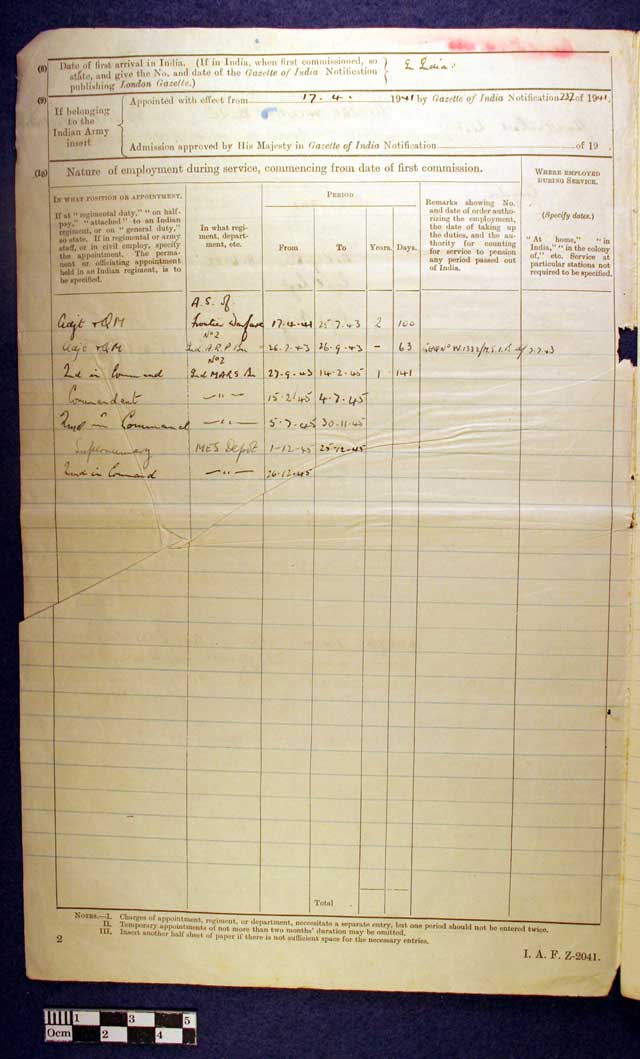 (8) Date of first arrival in India. (If in India, when first commissioned, so
state, and give the No. and date of the Gazette of India Notification
publishing London Gazette.)
In India.
(9) If belonging
to the
Indian Army
insert
Appointed with effect from 17. 4. 1941 by Gazette of India Notification 737 of 1941.
Admission approved by His Majesty in Gazette of India Notification of 19 .
(10) Nature of employment during service, commencing from date of first commission.
Where employed
during Service.
(Specify dates.)
"At home," "in
India," "in the colony
of," etc. Service at
particular stations not
required to be specified.
In what position or appointment.
If at "regimental duty," "on half-
pay," "attached" to an Indian
regiment, or on "general duty,"
so state. If in regimental or army
staff, or in civil employ, specify
the appointment. The perma-
nent or officiating appointment
held in an Indian regiment, is to
be specified.
In what regi-
ment, depart-
ment, etc.
Period
From
To
Years.
Days.
Remarks showing No.
and date of order autho-
rizing the employment,
the date of taking up
the duties, and the au-
thority for counting
for service to pension
any period passed out
of India.
A.S. of
Adjt & QM Frontier Warfare 17.4.41 25.7.43 2 100
No 2
Adjt & QM 2nd A.R.P Bn 26.7.43 26.9.43 - 63 7.7.43
No 2
2nd in Command 2nd MARS Bn 27.9.43 14.2.45 1 141
Commandant —"— 15.2.45 4.7.45
2nd in Command —"— 5.7.45 30.11.45
Supernumerary MES Depôt 1-12-45 25-12-45
2nd in Command —"— 26.12.45
Total
Notes.—I. Charges of appointment, regiment, or department, necessitate a separate entry, but one period should not be entered twice.
II. Temporary appointments of not more than two months' duration may be omitted.
III. Insert another half sheet of paper if there is not sufficient space for the necessary entries.
2
I. A. F. Z-2041.
1 3 5
0cm 2 4